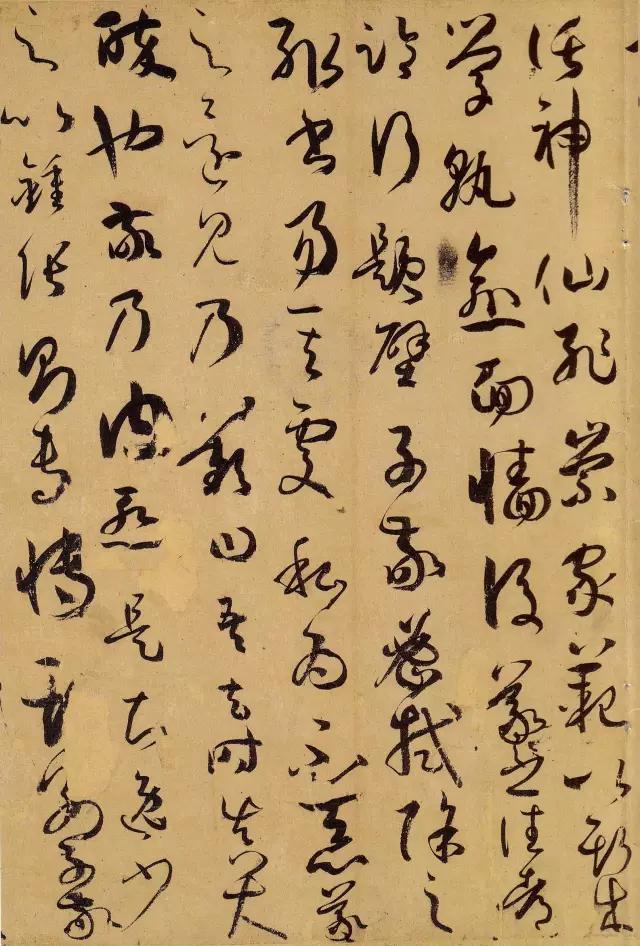 託神仙恥崇家範以斯成
學孰愈面牆後羲之往都
臨行題壁子敬密拭除之
輒書易其處私為不惡羲
之還見乃歎曰吾去時真大
醉也敬乃內慙是知逸少
之比鍾張則專博斯別子敬